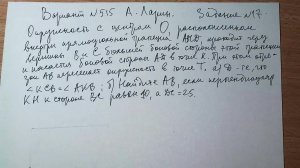 Вариант №515 А. Ларин. Задание №17.
Окружность с центром O, расположенном
внутри прямоугольной трапеции проходит через
вершины B и C большей боковой стороны этой трапеции
и касается боковой стороны AD в точке K. При этом
AB пересекает окружность в точке T. а)
< KCB = < б) Найдите AB, если перпендикуляр
KH к стороне BC равен 40, а BC=25.